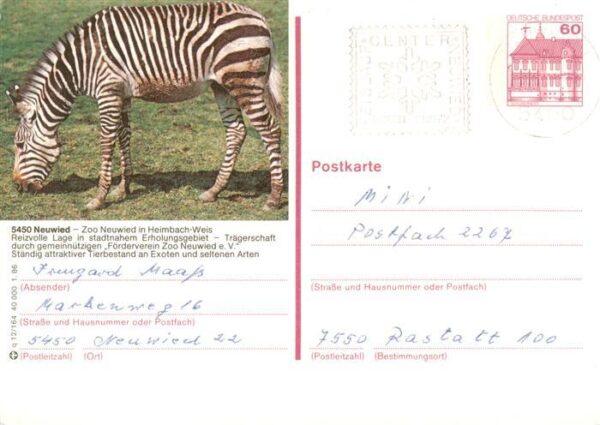 5450 Neuwied – Zoo Neuwied in Heimbach-Weis
Reizvolle Lage in stadtnahem Erholungsgebiet – Trägerschaft
durch gemeinnützigen „Förderverein Zoo Neuwied e. V.“
Ständig attraktiver Tierbestand an Exoten und seltenen Arten
Irmgard Maaß
(Absender)
Markenweg 16
(Straße und Hausnummer oder Postfach)
5450 Neuwied 22
(Postleitzahl) (Ort)
q 12/164 40 000 1. 86
CENTER
DEUTSCHE BUNDESPOST
60
Postkarte
Mini
Postfach 2267
(Straße und Hausnummer oder Postfach)
7550 Rastatt 100
(Postleitzahl) (Bestimmungsort)